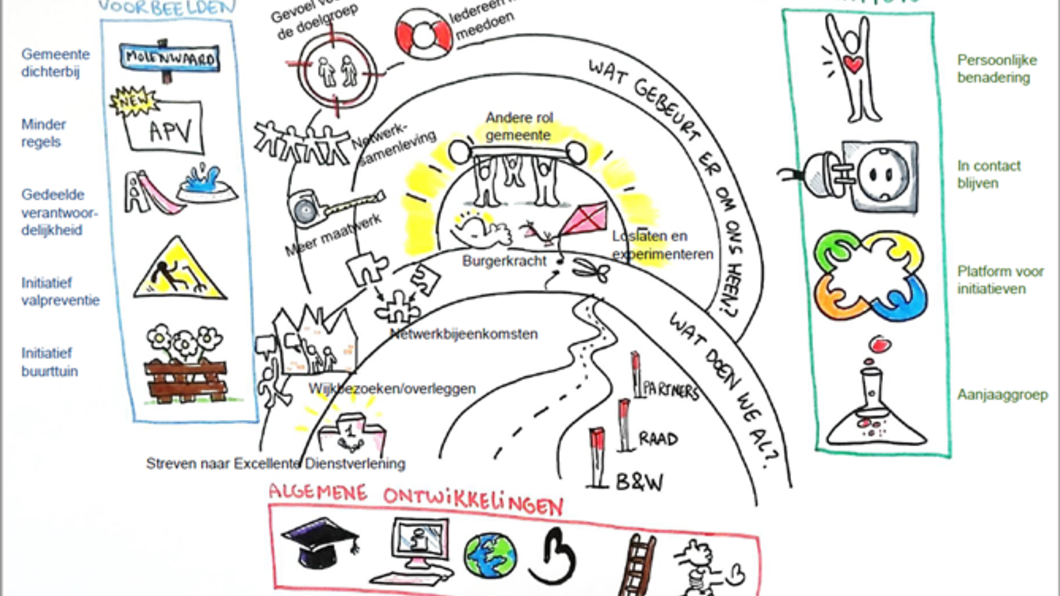 VOORBEELDEN
Gemeente
dichterbij
MOLENWAARD
Minder
regels
NEW
APV
Gedeelde
verantwoor-
delijkheid
Initiatief
valpreventie
Initiatief
buurttuin
Gevoel
de doelgroep
Iedereen
meedoen
Netwerk-
samenleving
Meer maatwerk
WAT GEBEURT ER OM ONS HEEN?
Andere rol
gemeente
Burgerkracht
Loslaten en
experimenteren
Netwerkbijeenkomsten
Wijkbezoeken/overleggen
1
Streven naar Excellente Dienstverlening
WAT DOEN WE AL?
PARTNERS
RAAD
B&W
Persoonlijke
benadering
In contact
blijven
Platform voor
initiatieven
Aanjaaggroep
ALGEMENE ONTWIKKELINGEN
i